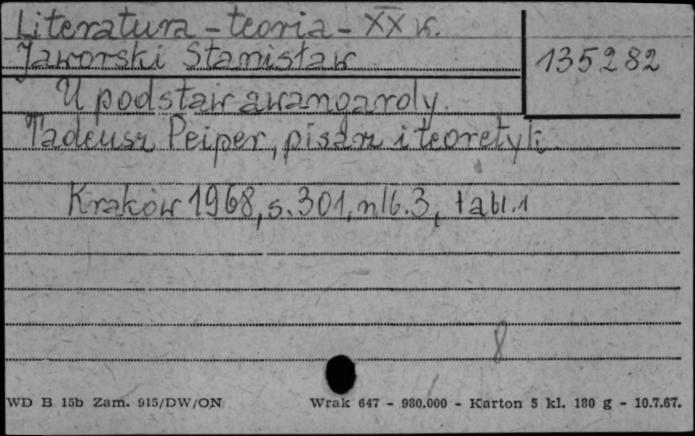 Literatura - teoria - XX w.
Jaworski Stanisław
135282
U podstaw awangardy.
Tadeusz Peiper, pisarz i teoretyk.
Kraków 1968, s. 301, nlb. 3, tabl. 1
8
WD B 15b Zam. 915/DW/ON
Wrak 647 - 980.000 - Karton 5 kl. 180 g - 10.7.67.